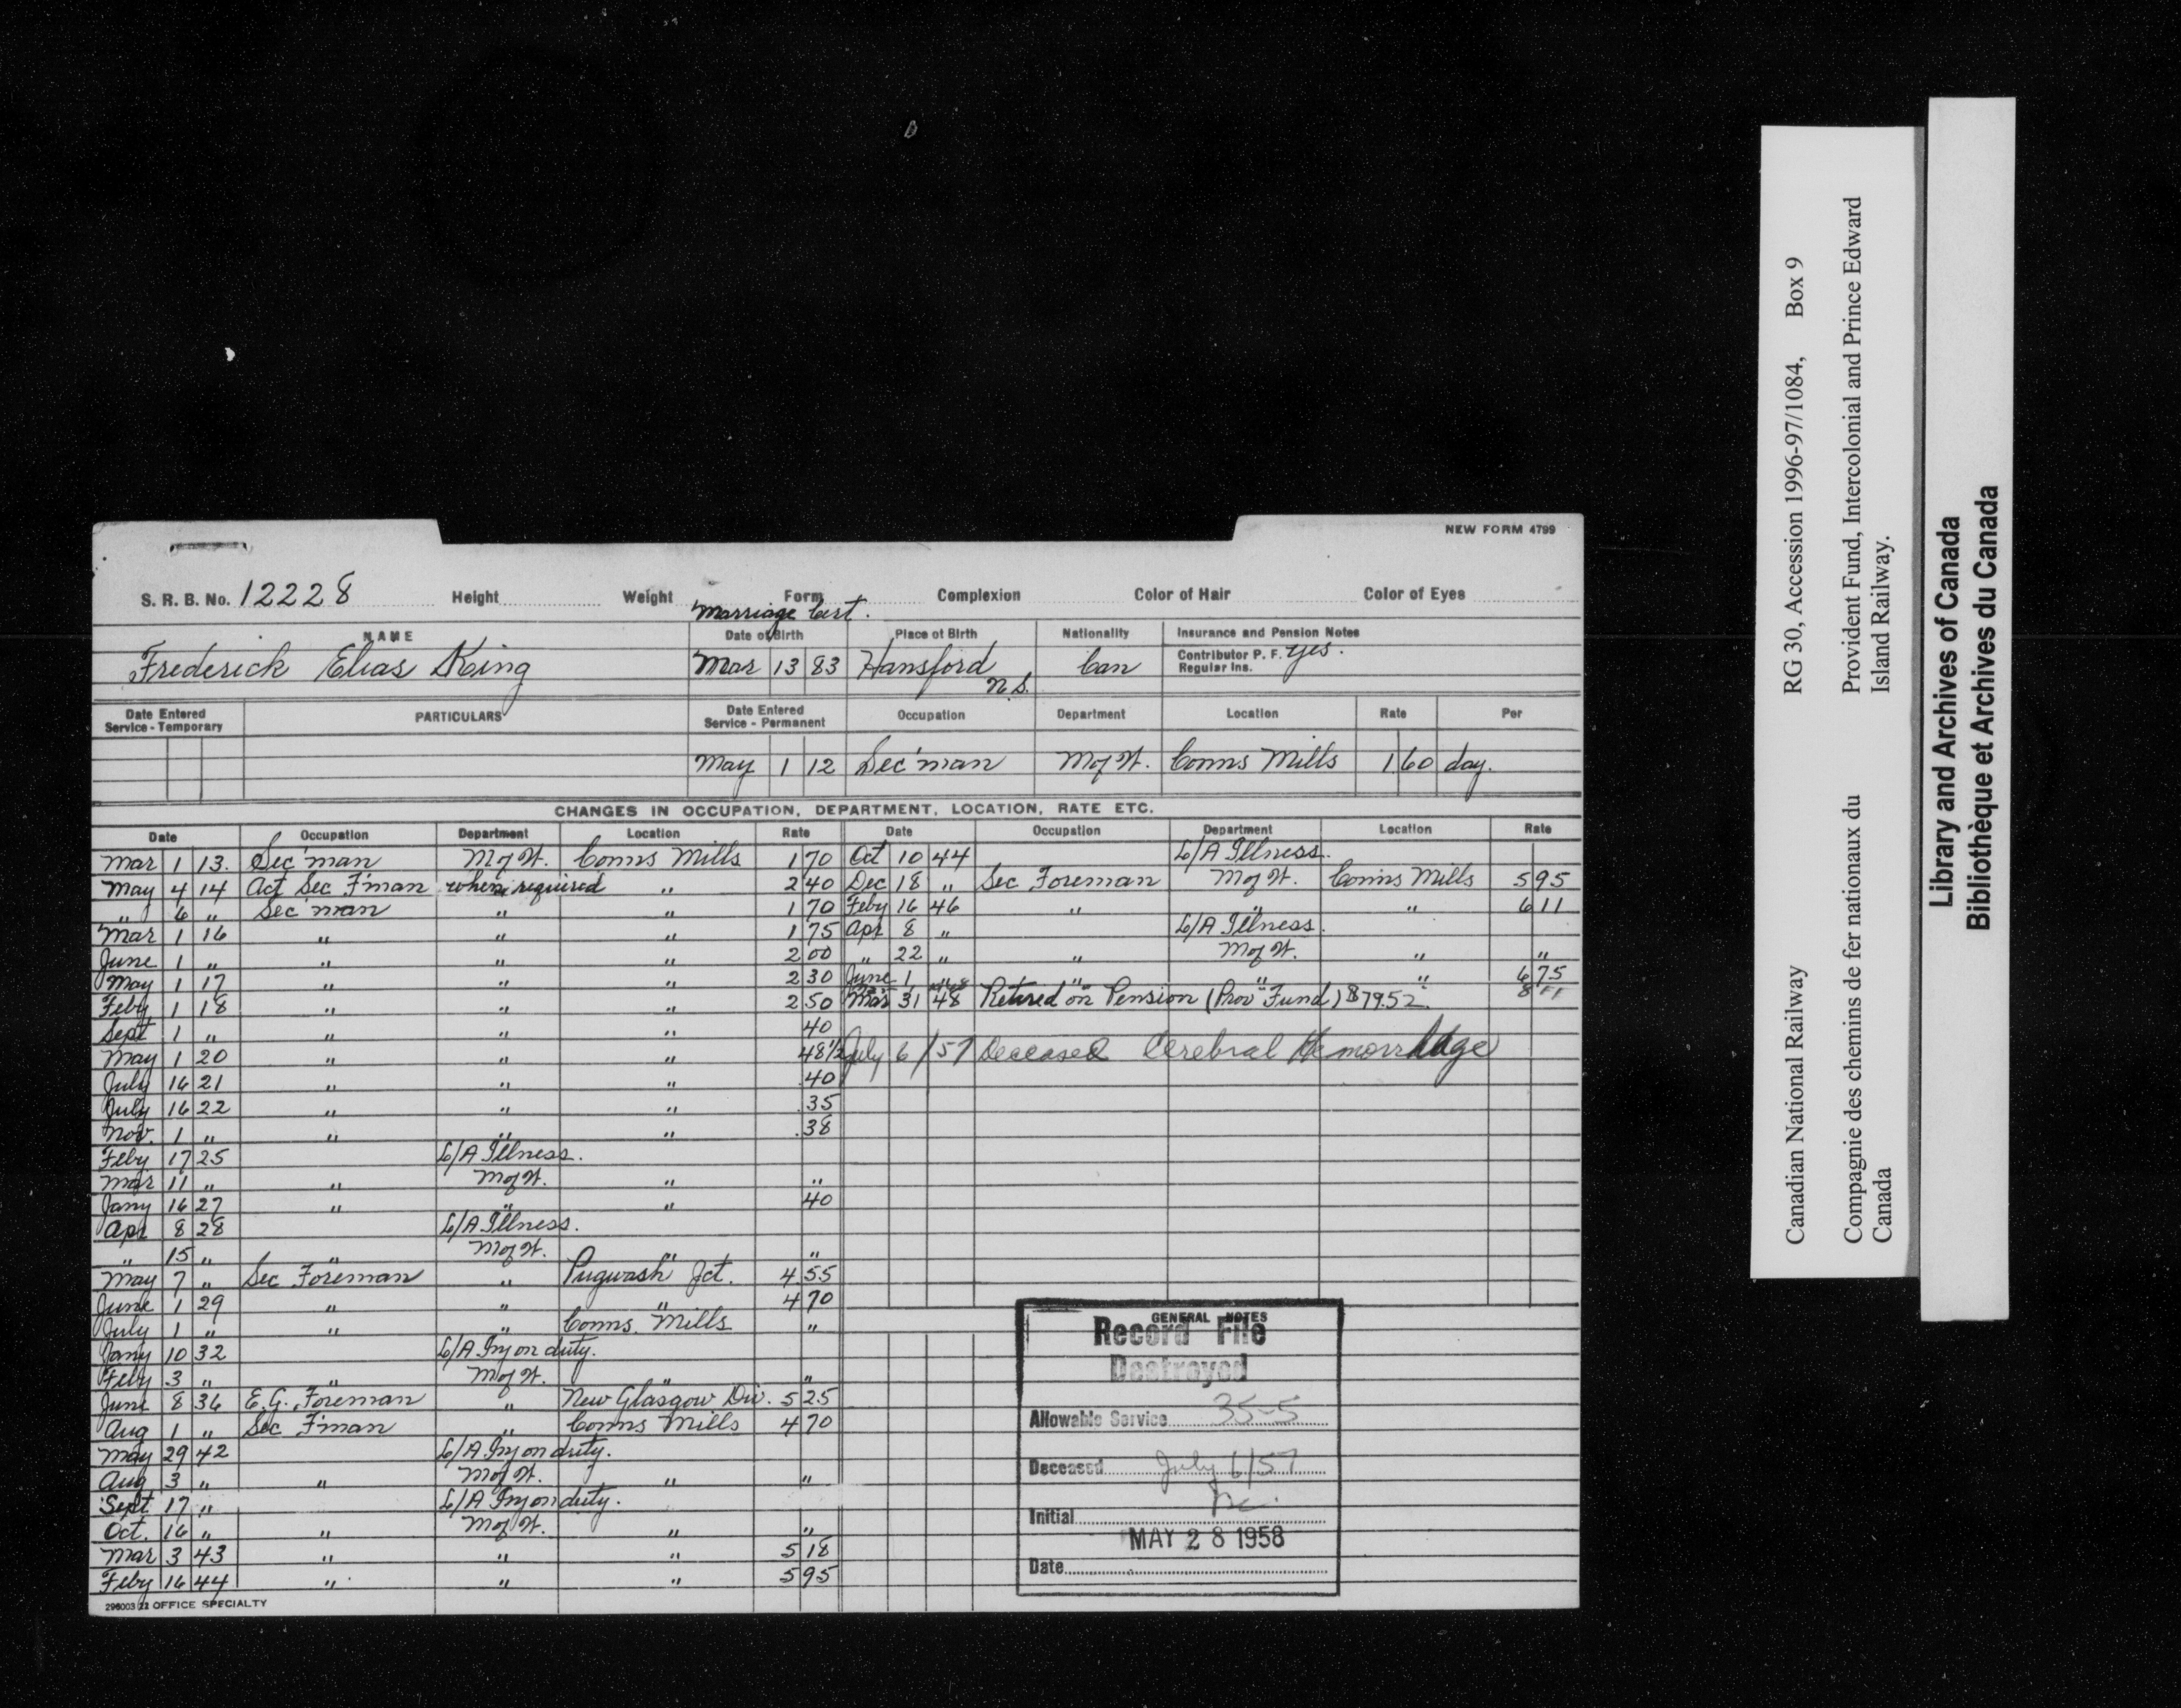 NEW FORM 4799
S. R. B. No. 12228 Height Weight Form Complexion Color of Hair Color of Eyes
Marriage Cert.
NAME Date of Birth Place of Birth Nationality Insurance and Pension Notes
Frederick Elias King Mar 13 83 Hansford N.S. Can Contributor P. F. yes.
Regular Ins.
Date Entered Service - Temporary PARTICULARS Date Entered Service - Permanent Occupation Department Location Rate Per
May 1 12 Sec'man M of W. Conns Mills 1 60 day.
CHANGES IN OCCUPATION, DEPARTMENT, LOCATION, RATE ETC.
Date Occupation Department Location Rate Date Occupation Department Location Rate
Mar 1 13. Sec'man M of W. Conns Mills 1 70 Oct 10 44 L/A Illness.
May 4 14 Act Sec F'man when required " 2 40 Dec 18 " Sec Foreman M of W. Conns Mills 5 95
" 6 " Sec'man " " 1 70 Feby 16 46 " " " 6 11
Mar 1 16 " " " 1 75 Apr 8 " L/A Illness.
June 1 " " " " 2 00 " 22 " " M of W. " "
May 1 17 " " " 2 30 June 1 " " " " 6 75
Feby 1 18 " " " 2 50 Mar 31 48 Retired on Pension (Prov Fund) $79.52.
Sept 1 " " " " 40
May 1 20 " " " 48½ July 6/57 Deceased Cerebral Hemorrhage
July 16 21 " " " .40
July 16 22 " " " .35
Nov. 1 " " " " .38
Feby 17 25 L/A Illness.
Mar 11 " " M of W. " "
Jany 16 27 " " " 40
Apr 8 28 L/A Illness.
" 15 " " M of W. " "
May 7 " Sec Foreman " Pugwash Jct. 4 55
June 1 29 " " " 4 70
July 1 " " " Conns. Mills "
Jany 10 32 L/A Inj on duty.
Feby 3 " " M of W. " "
June 8 36 E.G. Foreman " New Glasgow Div. 5 25
Aug 1 " Sec F'man " Conns Mills 4 70
May 29 42 L/A Inj on duty.
Aug 3 " " M of W. " "
Sept 17 " L/A Inj on duty.
Oct. 16 " " M of W. " "
Mar 3 43 " " " 5 18
Feby 16 44 " " " 5 95
GENERAL NOTES
Record File
Destroyed
Allowable Service 35-5
Deceased July 6/57
Initial
MAY 28 1958
Date
296003 22 OFFICE SPECIALTY
Canadian National Railway RG 30, Accession 1996-97/1084, Box 9
Compagnie des chemins de fer nationaux du Canada
Provident Fund, Intercolonial and Prince Edward Island Railway.
Library and Archives of Canada
Bibliothèque et Archives du Canada